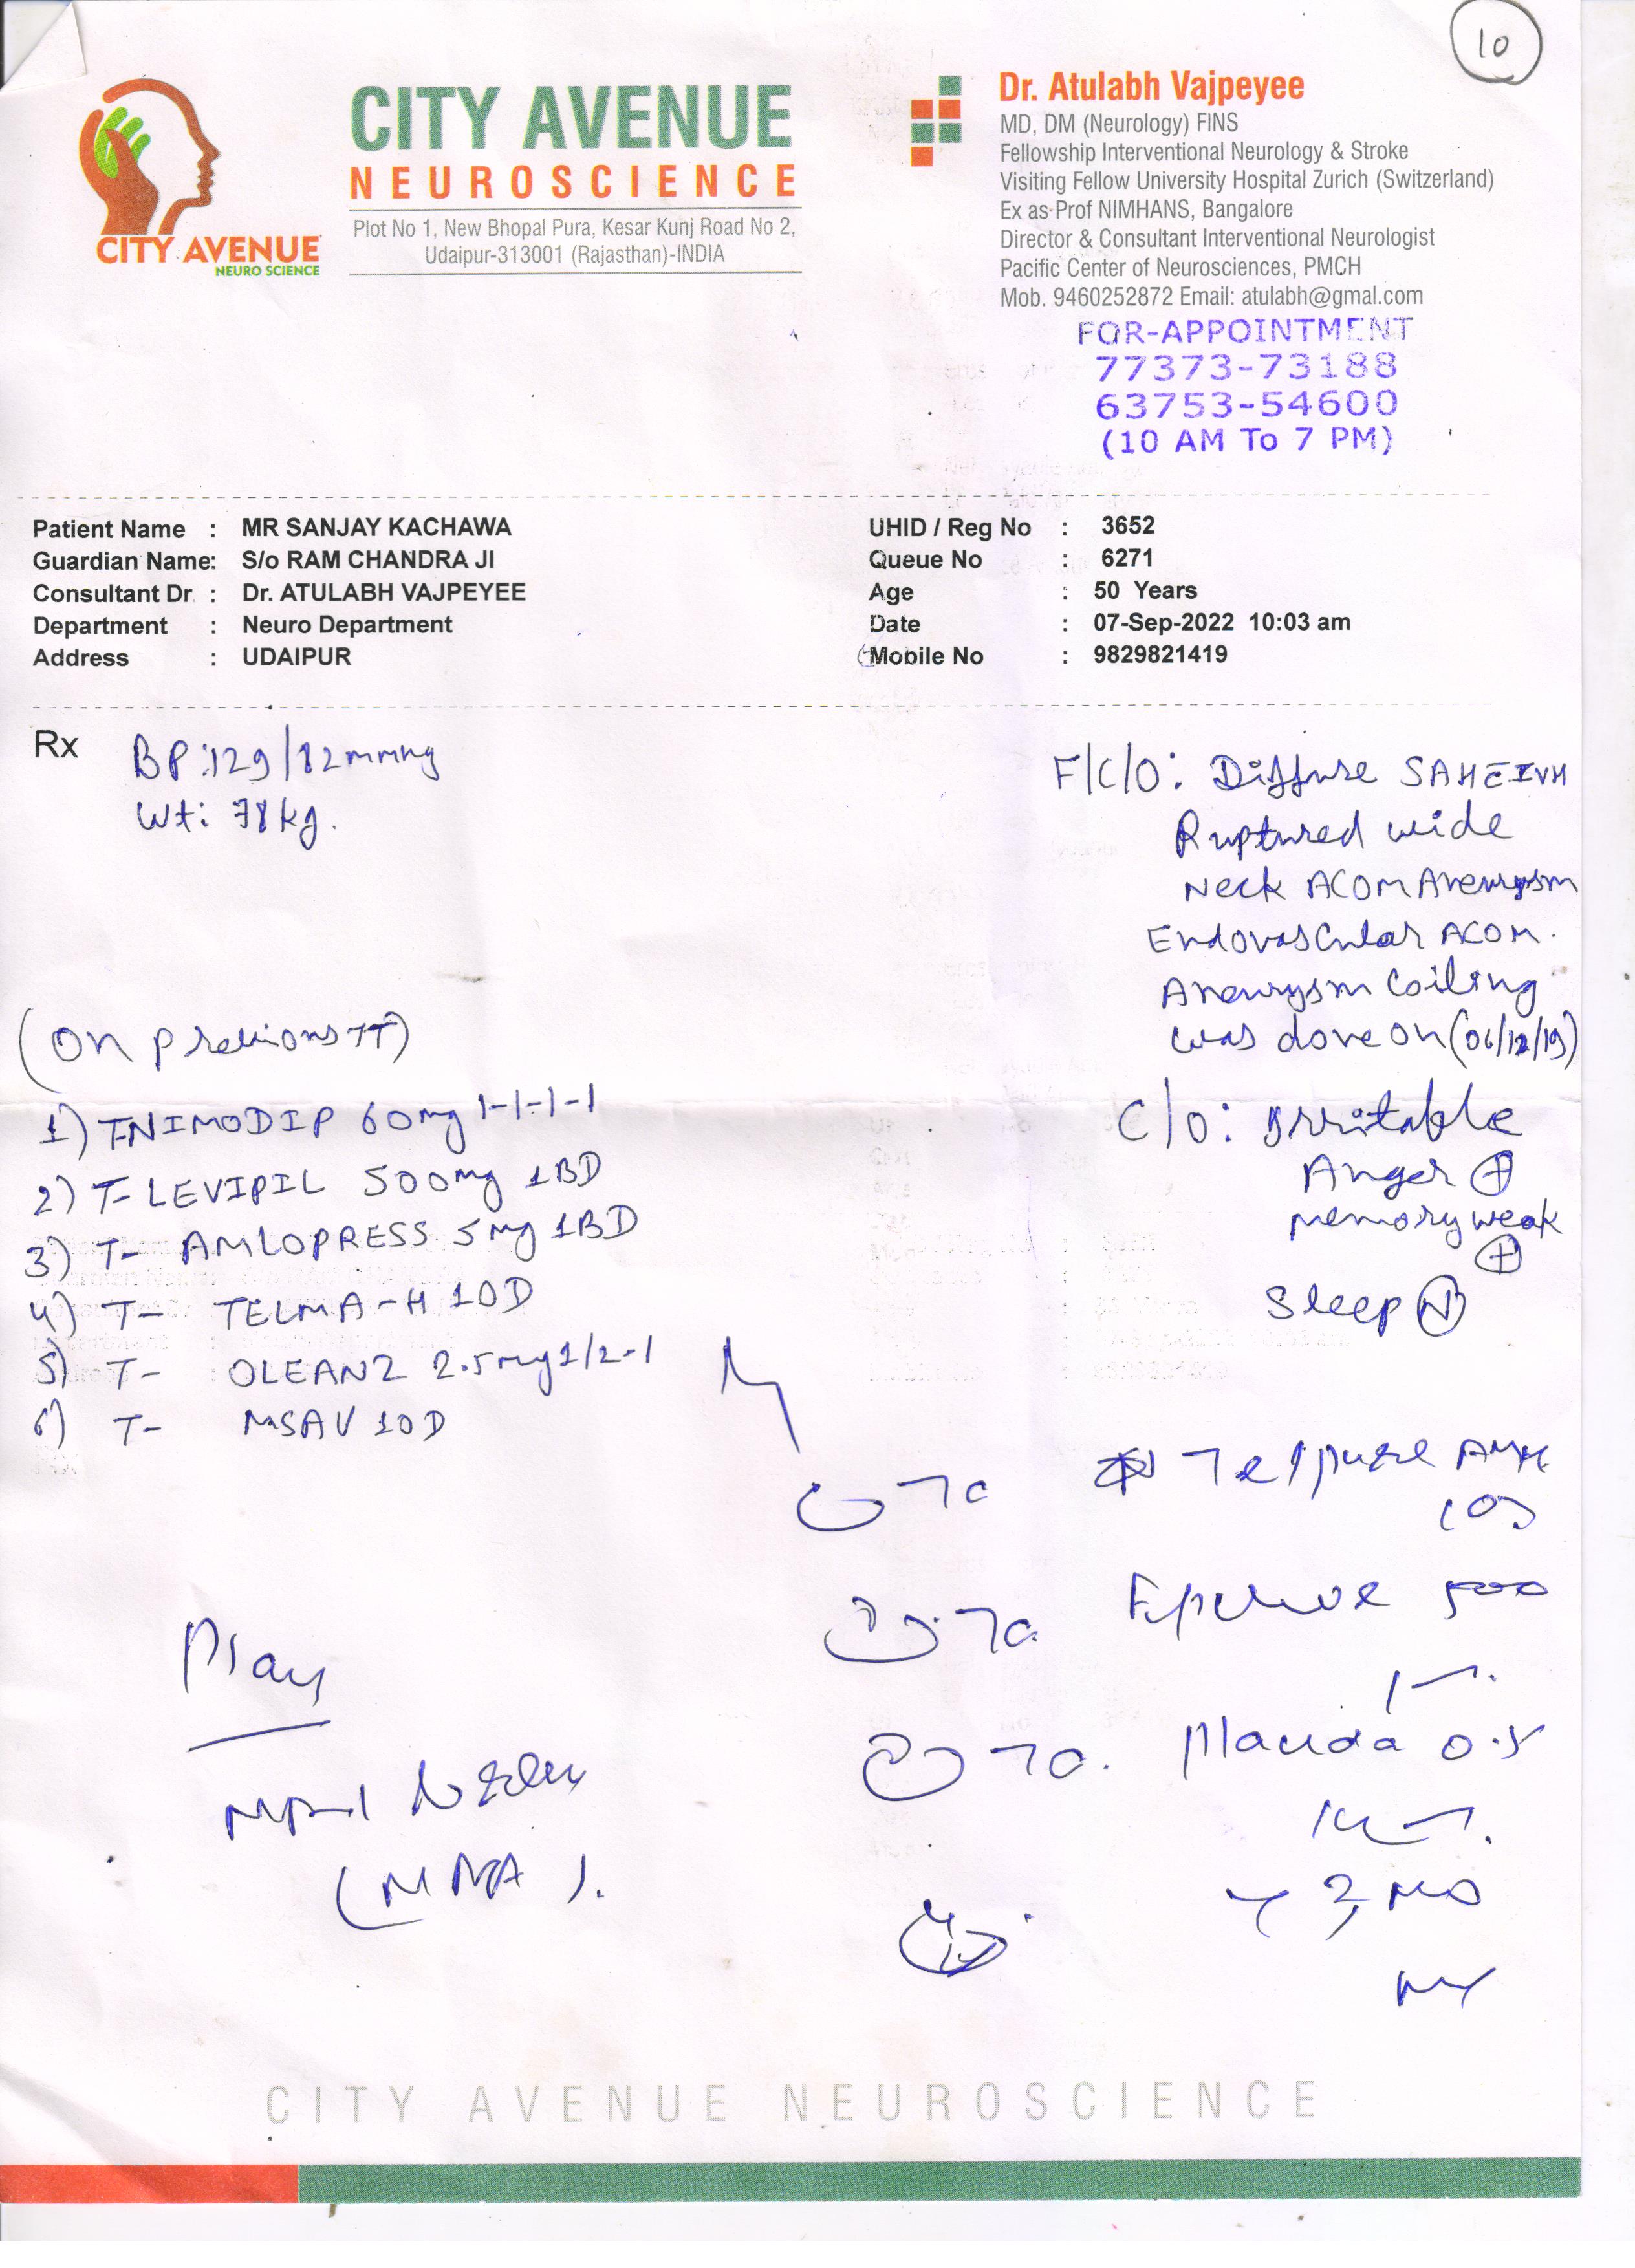 10
CITY AVENUE
NEURO SCIENCE
CITY AVENUE
NEUROSCIENCE
Plot No 1, New Bhopal Pura, Kesar Kunj Road No 2,
Udaipur-313001 (Rajasthan)-INDIA
Dr. Atulabh Vajpeyee
MD, DM (Neurology) FINS
Fellowship Interventional Neurology & Stroke
Visiting Fellow University Hospital Zurich (Switzerland)
Ex as Prof NIMHANS, Bangalore
Director & Consultant Interventional Neurologist
Pacific Center of Neurosciences, PMCH
Mob. 9460252872 Email: atulabh@gmal.com
FOR-APPOINTMENT
77373-73188
63753-54600
(10 AM To 7 PM)
Patient Name : MR SANJAY KACHAWA
Guardian Name: S/o RAM CHANDRA JI
Consultant Dr : Dr. ATULABH VAJPEYEE
Department : Neuro Department
Address : UDAIPUR
UHID / Reg No : 3652
Queue No : 6271
Age : 50 Years
Date : 07-Sep-2022 10:03 am
Mobile No : 9829821419
Rx
BP:129/82mmHg
Wt: 78kg.
F/C/O: Diffuse SAH IVH
Ruptured wide
Neck ACOM Aneurysm
Endovascular ACOM.
Aneurysm Coiling
was done on (06/12/19)
C/O: Irritable
Anger (+)
memory weak
(+)
Sleep (N)
(On previous TT)
1) T-NIMODIP 60mg 1-1-1-1
2) T-LEVIPIL 500mg 1BD
3) T- AMLOPRESS 5mg 1BD
4) T- TELMA-H 1OD
5) T- OLEANZ 2.5mg 1/2-1
6) T- MSAV 1OD
500
0.5
Plan